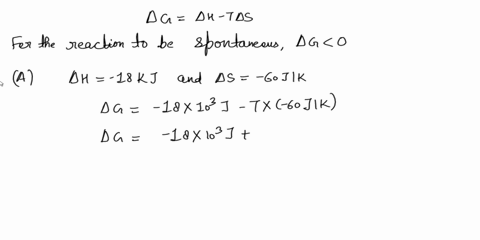 ΔG = ΔH - TΔS
For the reaction to be spontaneous, ΔG < 0
(A) ΔH = -18 KJ and ΔS = -60 J|K
ΔG = -18 × 10³ J - T × (-60 J|K)
ΔG = -18 × 10³ J +